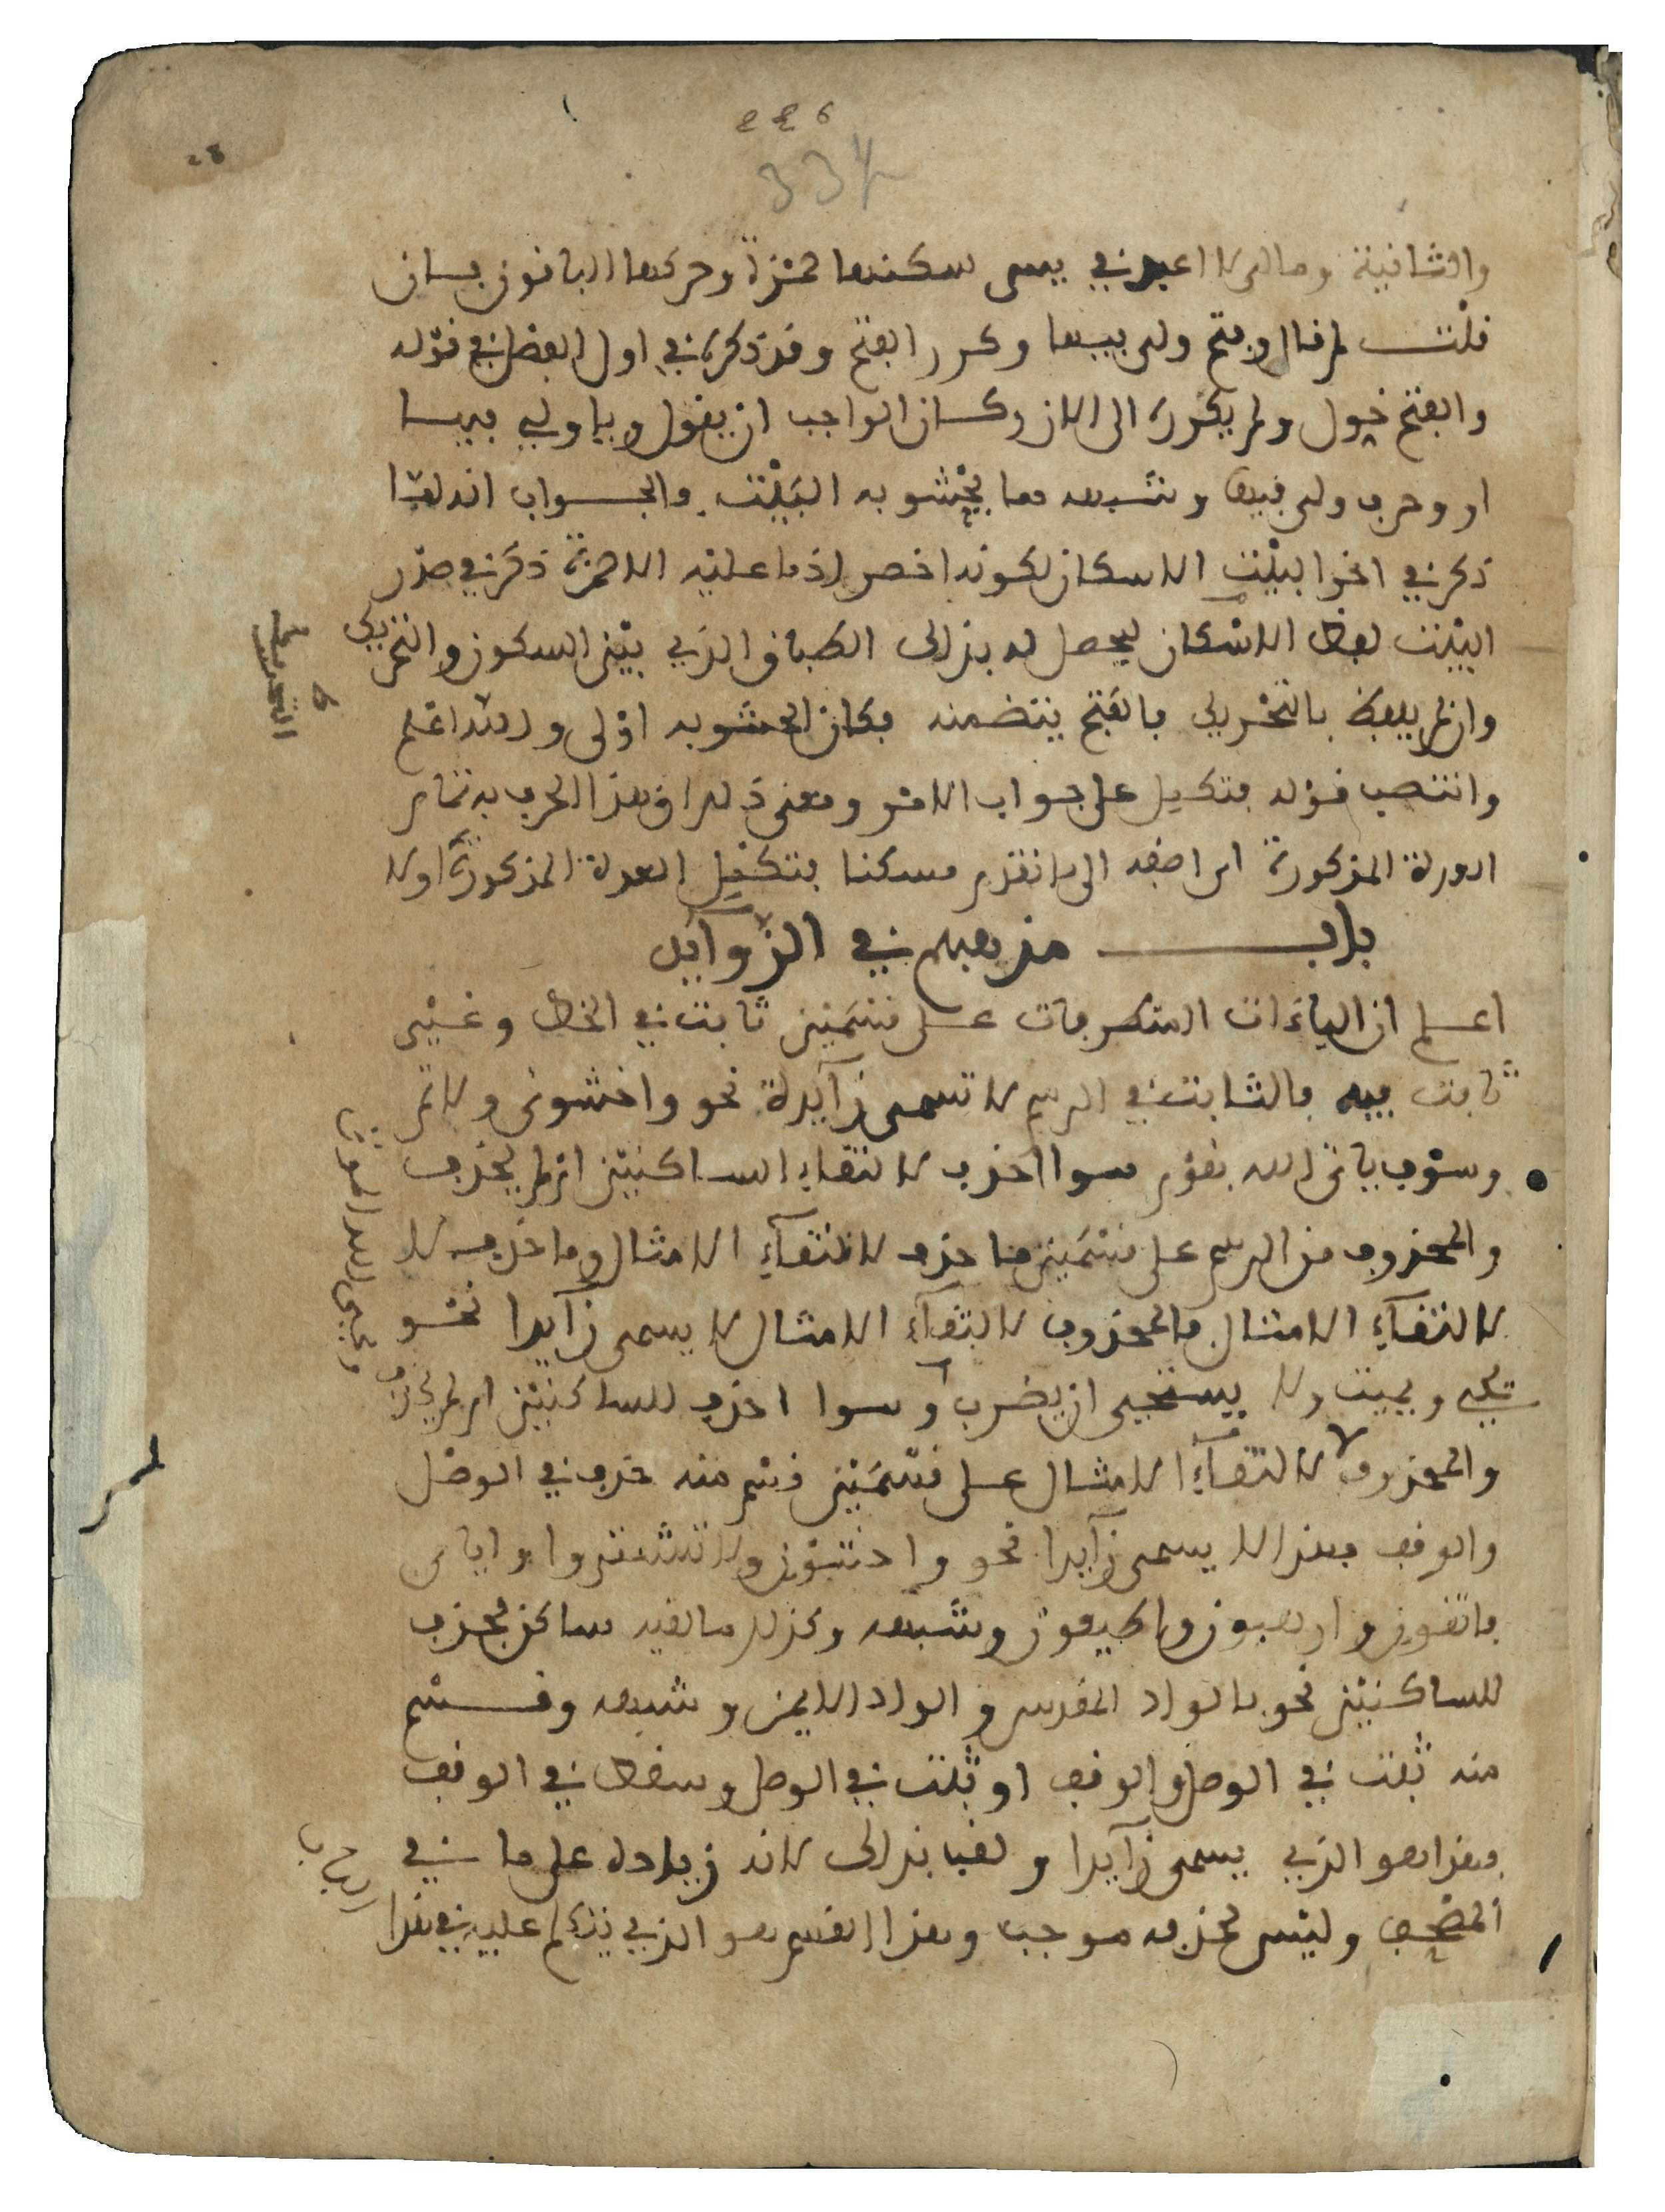 226
334
والثانية ومالي لا اعبد في يس سكنها حمزة وحركها الباقون فان
قلت لم قال وفتح ولي فيها وكرر الفتح وقد ذكره في اول الفصل في قوله
والفتح خول ولم يكرره الى الان وكان الواجب ان يقول ويا ولي فيها
او وحرف ولي فيها وشبهه مما يحشو به البيت والجواب انه لما
ذكر في اخر البيت الاسكان لكونه اخصر اذ ما عليه الا حمزة ذكر في صدر
البيت لفظ الاسكان ليحصل له بذلك الطباق الذي بين السكون والتحريك
وان لم يلفظ بالتحريك فالفتح يتضمنه فكان الحشو به اولى والله اعلم
وانتصب قوله فتكمل على جواب الامر ومعنى ذلك ان هذا الحرف به تمام
العدة المذكورة اي اضفه الى ما تقدم مسكنا فتكمل العدة المذكورة اولا
باب مذهبهم في الزوائد
اعلم ان الياءات المتطرفات على قسمين ثابت في الخط وغير
ثابت فيه فالثابت في الرسم لا تسمى زائدة نحو واخشوني ولاتم
وسوف ياتي الله بقوم سوا احذف لالتقاء الساكنين ام لم يحذف
والمحذوف من الرسم على قسمين ما حذف لالتقاء الامثال وما حذف لا
لالتقاء الامثال فالمحذوف لالتقاء الامثال لا يسمى زائدا نحو
يحي ويميت ولا يستحي ان يضرب وسوا احذف للساكنين ام لم يحذف
والمحذوف لا لالتقاء الامثال على قسمين قسم منه حذف في الوصل
والوقف فهذا لا يسمى زائدا نحو واخشون ولا تشتروا واياي
فاتقون وارهبون واطيعون وشبهه وكذلك ما لقيه ساكن فحذف
للساكنين نحو بالواد المقدس والواد الايمن وشبهه وقسم
منه ثبت في الوصل والوقف او ثبت في الوصل وسقط في الوقف
فهذا هو الذي يسمى زائدا ولقبا بذلك لانه زيادة على ما في
المصحف وليس لحذفه موجب وهذا القسم هو الذي نتكلم عليه في هذا